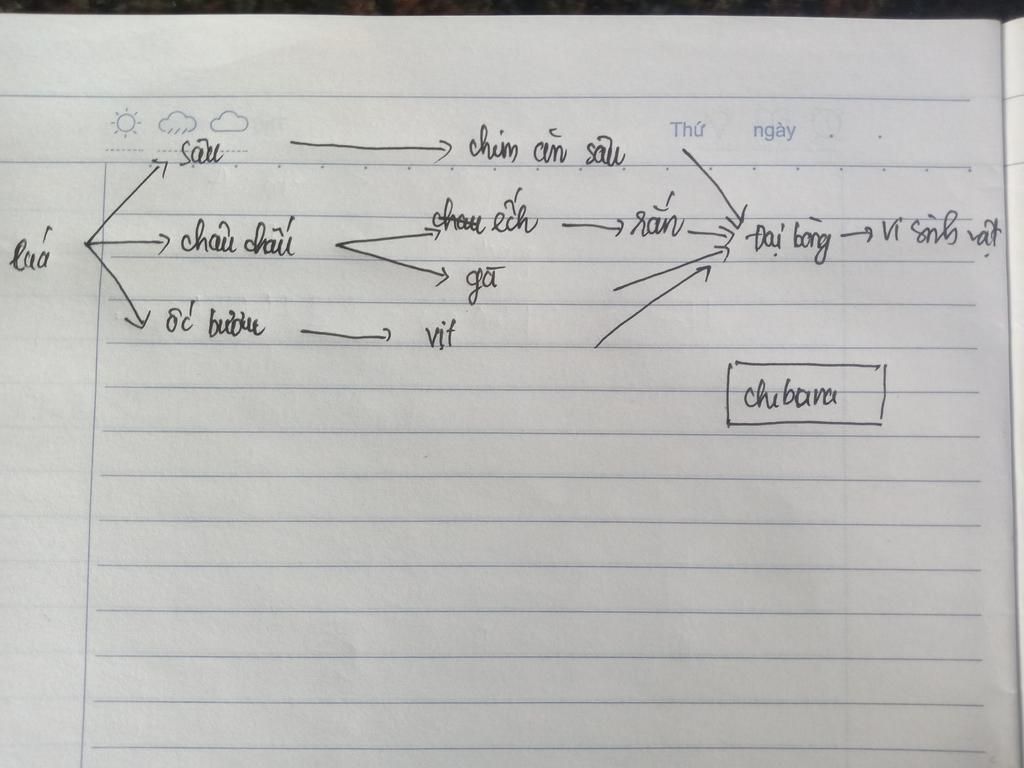 Thứ ngày
sâu chim ăn sâu
lúa châu chấu ếch rắn Đại bàng vi sinh vật
gà
ốc bươu vịt
chibana